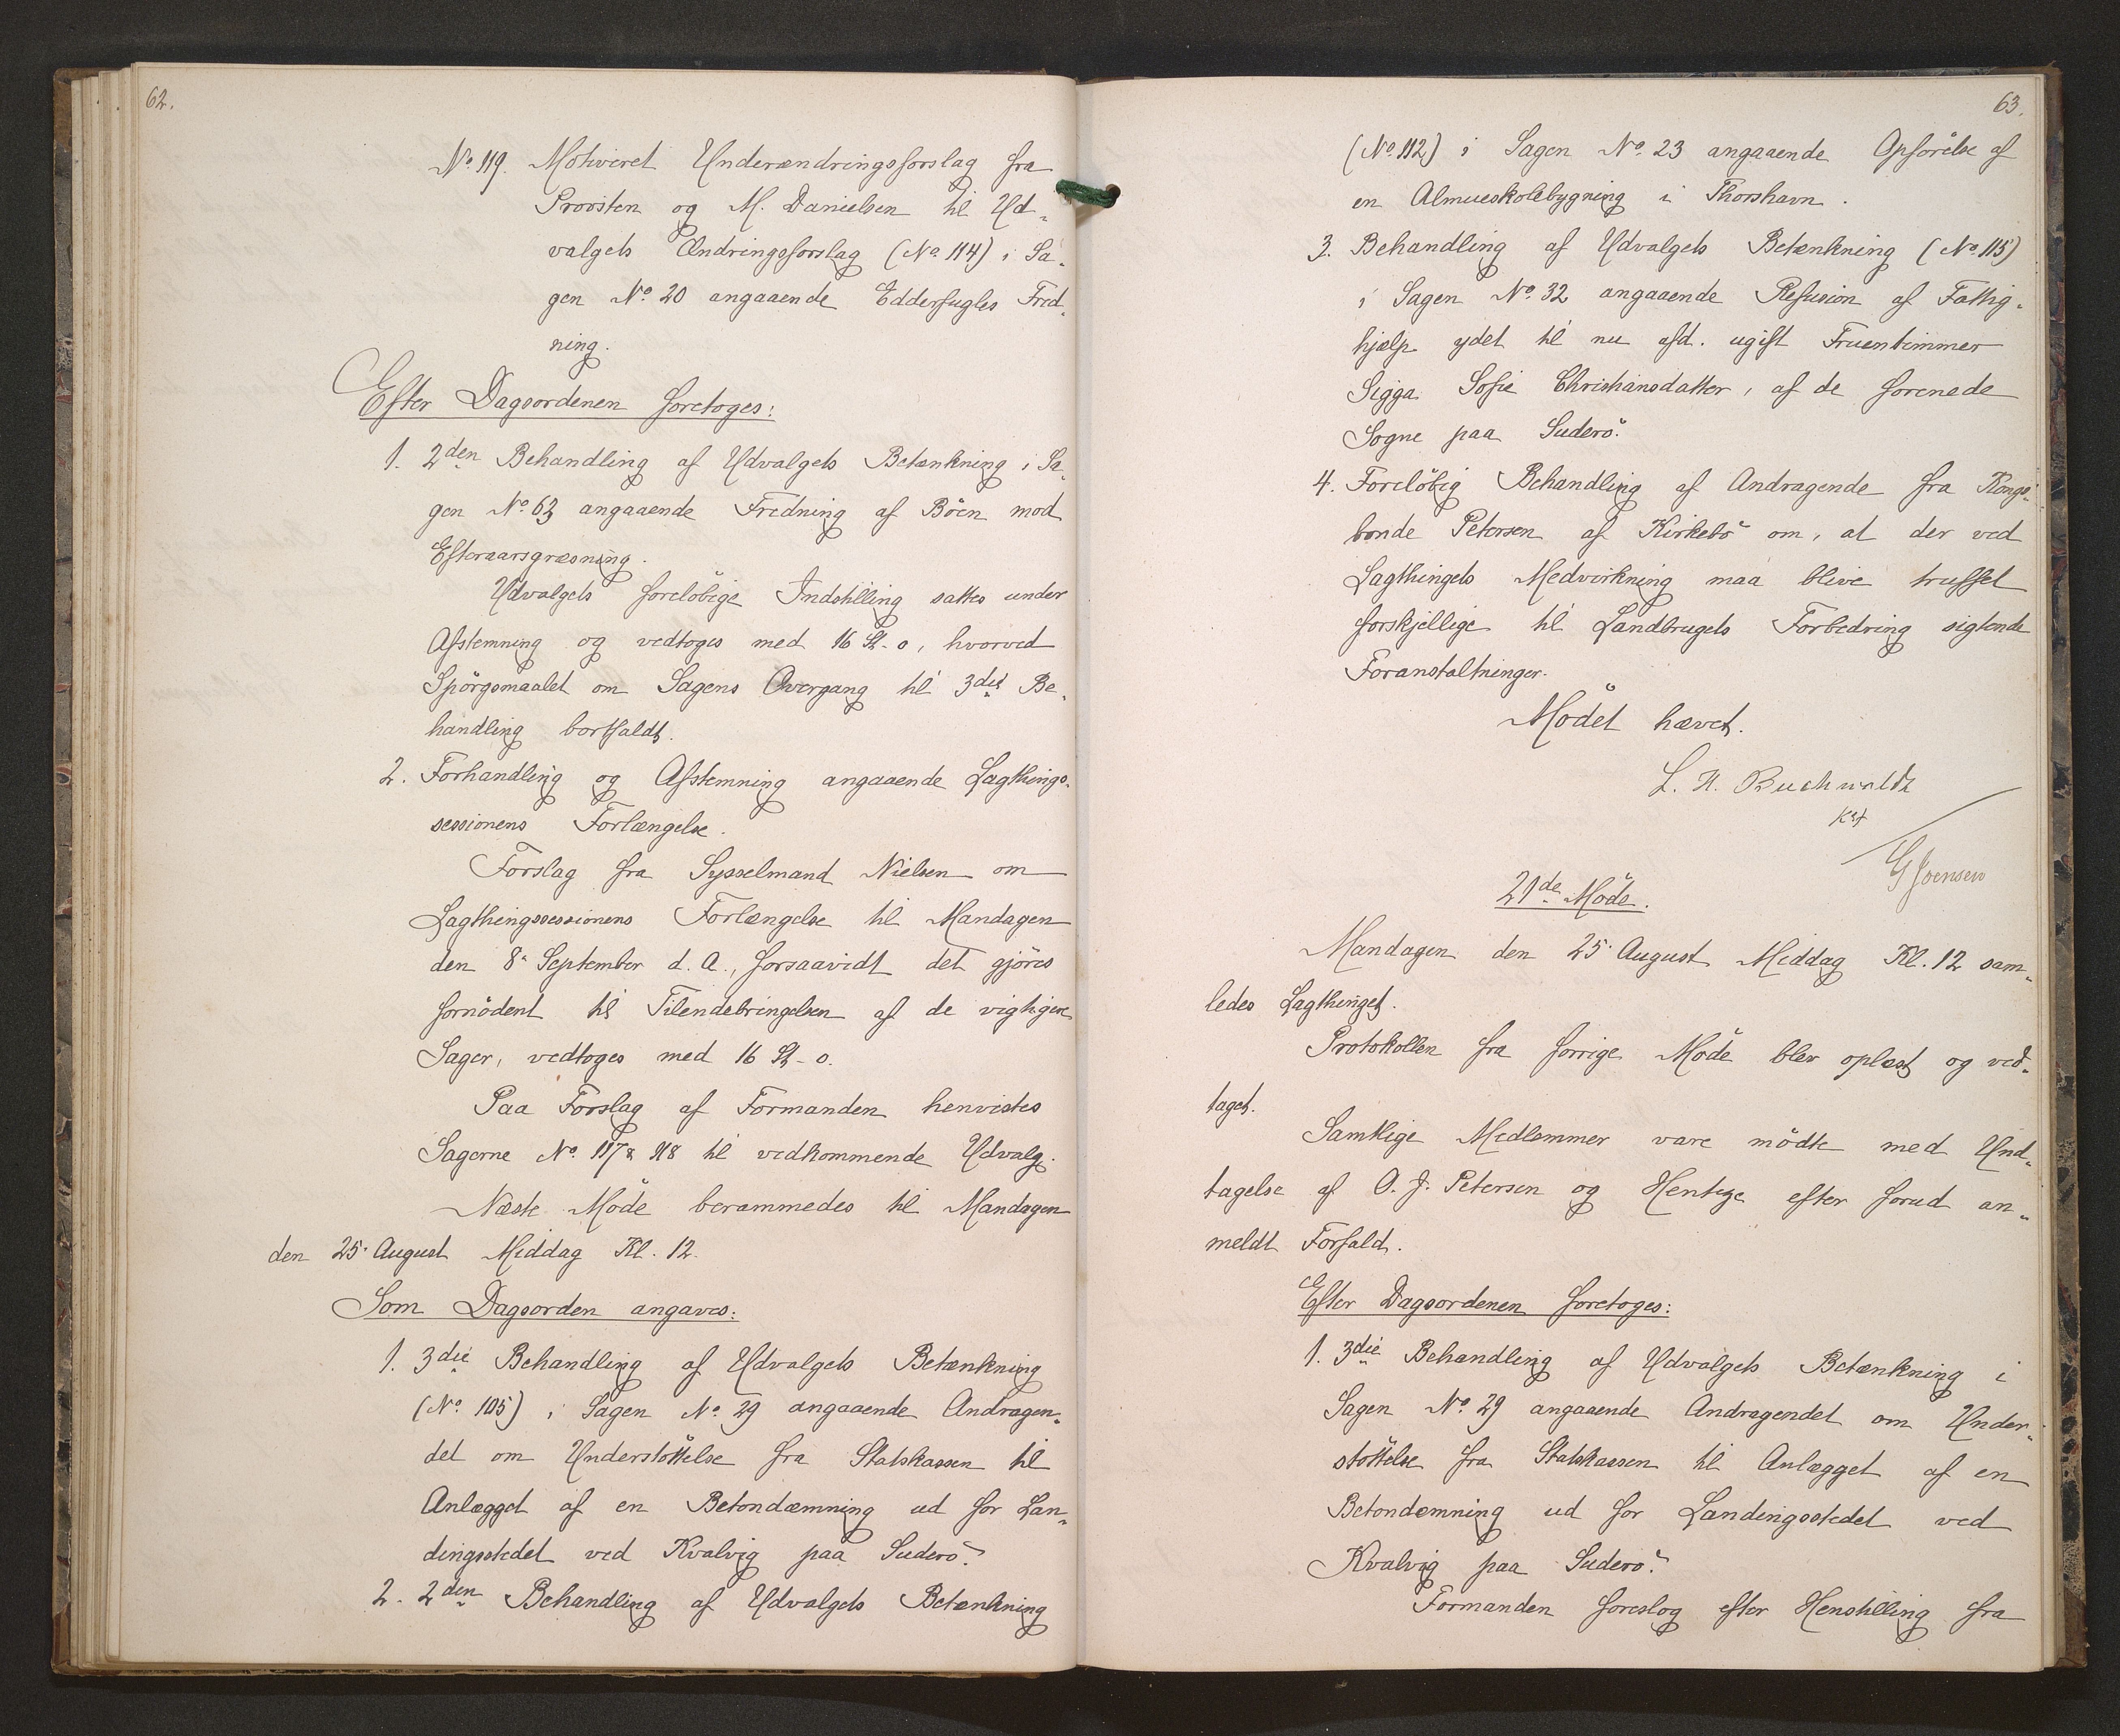 62.
No. 119. Motiveret Underændringsforslag fra
Provsten og M. Danielsen til Ud-
valgets Ændringsforslag (No. 114) i Sa-
gen No. 20 angaaende Edderfugles Fred-
ning.
Efter Dagsordenen foretoges:
1. 2den Behandling af Udvalgets Betænkning i Sa-
gen No. 63 angaaende Fredning af Böen mod
Efteraarsgræsning.
Udvalgets foreløbige Indstilling sattes under
Afstemning og vedtoges med 16 St-0, hvorved
Spörgsmaalet om Sagens Overgang til 3die Be-
handling bortfaldt.
2. Forhandling og Afstemning angaaende Lagthings-
sessionens Forlængelse.
Forslag fra Sysselmand Nielsen om
Lagthingssessionens Forlængelse til Mandagen
den 8. September d. A., forsaavidt det gjöres
fornödent til Tilendebringelsen af de vigtigere
Sager, vedtoges med 16 St-0.
Paa Forslag af Formanden henvistes
Sagerne No. 117 & 118 til vedkommende Udvalg.
Næste Möde berammedes til Mandagen
den 25. August Middag Kl. 12.
Som Dagsorden angaves:
1. 3die Behandling af Udvalgets Betænkning
(No. 105) i Sagen No. 29 angaaende Andragen-
det om Understöttelse fra Statskassen til
Anlægget af en Betondæmning ud for Lan-
dingsstedet ved Kvalvig paa Suderö.
2. 2den Behandling af Udvalgets Betænkning
63.
(No. 112) i Sagen No. 23 angaaende Opförelse af
en Almueskolebygning i Thorshavn.
3. Behandling af Udvalgets Betænkning (No. 115)
i Sagen No. 32 angaaende Refusion af Fattig-
hjælp ydet til nu afd. ugift Fruentimmer
Sigga Sofie Christiansdatter, af de forenede
Sogne paa Suderö.
4. Forelöbig Behandling af Andragende fra Kongs-
bonde Petersen af Kirkebö om, at der ved
Lagthingets Medvirkning maa blive truffet
forskjellige til Landbrugets Forbedring sigtende
Foranstaltninger.
Mödet hævet.
L. H. Buchwaldt
Kst
G Joensen
21de Möde.
Mandagen den 25. August Middag Kl. 12 sam-
ledes Lagthinget.
Protokollen fra forrige Möde blev oplæst og ved-
taget.
Samtlige Medlemmer vare mödte med Und-
tagelse af O. J. Petersen og Hentze efter forud an-
meldt Forfald.
Efter Dagsordenen foretoges:
1. 3die Behandling af Udvalgets Betænkning i
Sagen No. 29 angaaende Andragendet om Under-
stöttelse fra Statskassen til Anlægget af en
Betondæmning ud for Landingsstedet ved
Kvalvig paa Suderö.
Formanden foreslog efter Henstilling fra